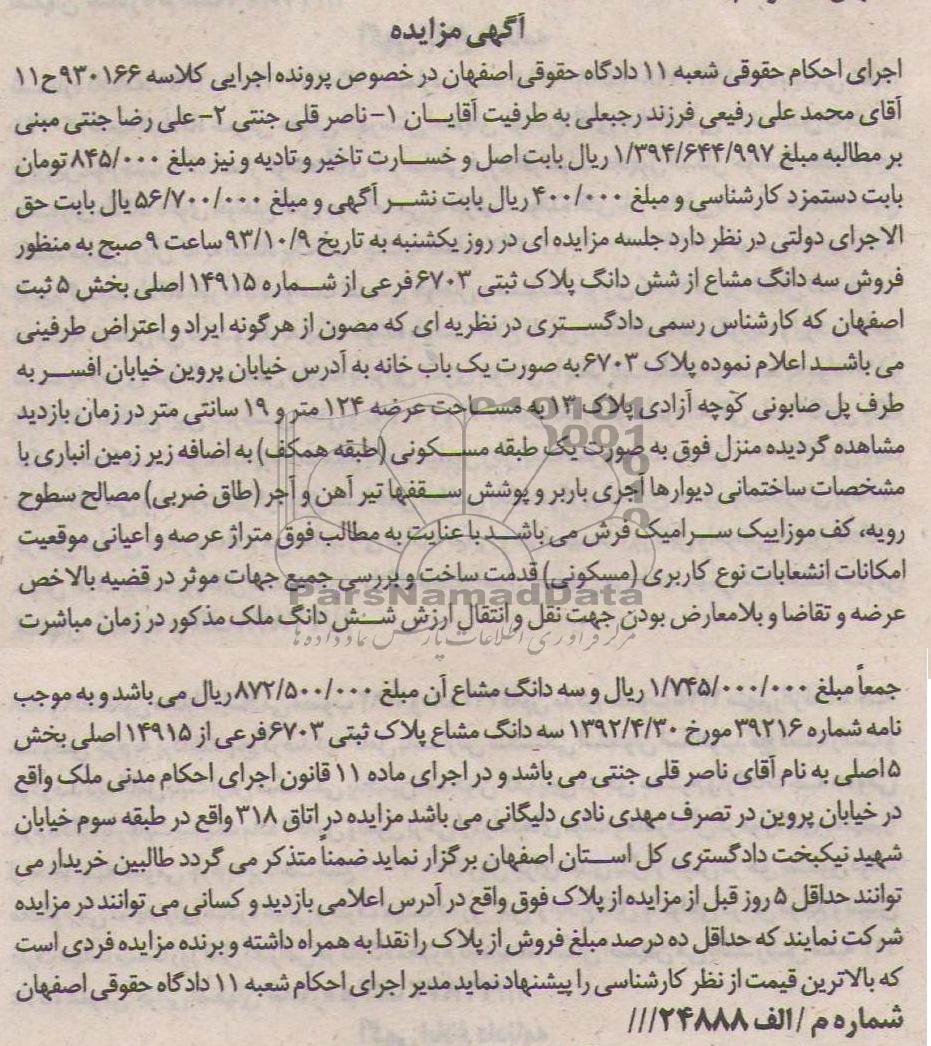 آگهی مزایده
اجرای احکام حقوقی شعبه ۱۱ دادگاه حقوقی اصفهان در خصوص پرونده اجرایی کلاسه ۹۳۰۱۶۶ح۱۱
آقای محمد علی رفیعی فرزند رجبعلی به طرفیت آقایان ۱- ناصر قلی جنتی ۲- علی رضا جنتی مبنی
بر مطالبه مبلغ ۱/۳۹۴/۶۴۴/۹۹۷ ریال بابت اصل و خسارت تاخیر و تادیه و نیز مبلغ ۸۴۵/۰۰۰ تومان
بابت دستمزد کارشناسی و مبلغ ۴۰۰/۰۰۰ ریال بابت نشر آگهی و مبلغ ۵۶/۷۰۰/۰۰۰ یال بابت حق
الاجرای دولتی در نظر دارد جلسه مزایده ای در روز یکشنبه به تاریخ ۹۳/۱۰/۹ ساعت ۹ صبح به منظور
فروش سه دانگ مشاع از شش دانگ پلاک ثبتی ۶۷۰۳ فرعی از شماره ۱۴۹۱۵ اصلی بخش ۵ ثبت
اصفهان که کارشناس رسمی دادگستری در نظریه ای که مصون از هرگونه ایراد و اعتراض طرفینی
می باشد اعلام نموده پلاک ۶۷۰۳ به صورت یک باب خانه به آدرس خیابان پروین خیابان افسر به
طرف پل صابونی کوچه آزادی پلاک ۱۳ به مساحت عرضه ۱۲۴ متر و ۱۹ سانتی متر در زمان بازدید
مشاهده گردیده منزل فوق به صورت یک طبقه مسکونی (طبقه همکف) به اضافه زیر زمین انباری با
مشخصات ساختمانی دیوارها آجری باربر و پوشش سقفها تیر آهن و آجر (طاق ضربی) مصالح سطوح
رویه، کف موزاییک سرامیک فرش می باشد با عنایت به مطالب فوق متراژ عرصه و اعیانی موقعیت
امکانات انشعابات نوع کاربری (مسکونی) قدمت ساخت و بررسی جمیع جهات موثر در قضیه بالاخص
عرضه و تقاضا و بلامعارض بودن جهت نقل و انتقال ارزش شش دانگ ملک مذکور در زمان مباشرت
جمعاً مبلغ ۱/۷۴۵/۰۰۰/۰۰۰ ریال و سه دانگ مشاع آن مبلغ ۸۷۲/۵۰۰/۰۰۰ ریال می باشد و به موجب
نامه شماره ۳۹۲۱۶ مورخ ۱۳۹۲/۴/۳۰ سه دانگ مشاع پلاک ثبتی ۶۷۰۳ فرعی از ۱۴۹۱۵ اصلی بخش
۵ اصلی به نام آقای ناصر قلی جنتی می باشد و در اجرای ماده ۱۱ قانون اجرای احکام مدنی ملک واقع
در خیابان پروین در تصرف مهدی نادی دلیگانی می باشد مزایده در اتاق ۳۱۸ واقع در طبقه سوم خیابان
شهید نیکبخت دادگستری کل استان اصفهان برگزار نماید ضمناً متذکر می گردد طالبین خریدار می
توانند حداقل ۵ روز قبل از مزایده از پلاک فوق واقع در آدرس اعلامی بازدید و کسانی می توانند در مزایده
شرکت نمایند که حداقل ده درصد مبلغ فروش از پلاک را نقدا به همراه داشته و برنده مزایده فردی است
که بالاترین قیمت از نظر کارشناسی را پیشنهاد نماید مدیر اجرای احکام شعبه ۱۱ دادگاه حقوقی اصفهان
شماره م / الف ۲۴۸۸۸///
ParsNamadData
مرکز فرآوری اطلاعات پارس نماد داده ها